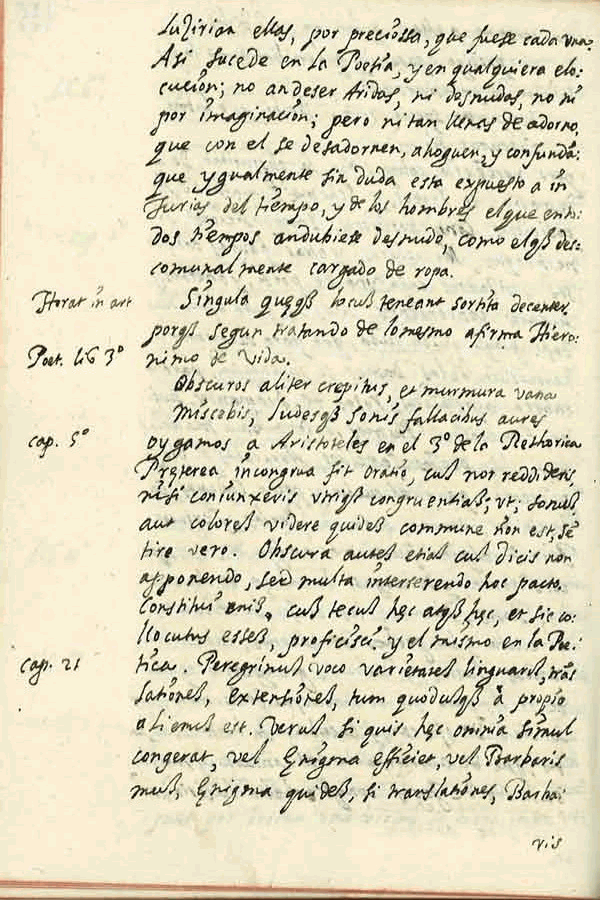 luzirian ellas, por preciossa, que fuese cada una.
Asi sucede en la Poetia, y en qualquiera elo:
cución; no an de ser Aridas, ni desnudas, no ni
por imaginación; pero ni tan llenas de adorno,
que con el se desadornen, ahoguen, y confundã:
que ygualmente sin duda esta expuesto a in
Jurias del tiempo, y de los hombres el que en to:
dos tiempos andubiese desnudo, como el qß des:
comunalmente cargado de ropa.
Horat in art
Singula quęqß locuß teneant sortita decenter.
porqß segun tratando de lo mesmo afirma Hiero:
Poet. lib 3º
nimo de Vida.
Obscuros aliter crepitus, et murmura vana
Miscebis, ludesqß sonis fallacibus aures
cap. 5º
oygamos a Aristoteles en el 3º de la Rethorica
Pręterea incongrua fit oratio, cuß non reddideris,
nisi coniunxeris utriqß congruentiaß; ut; sonuß
aut coloreß videre quideß commune non est, sẽ
tire vero. Obscura auteß etiaß cuß dicis non
apponendo, sed multa interserendo hoc pacto.
Constitui eniß, cuß tecuß hęc atqß hęc, et sic co:
llocutus esseß, proficisci. y el mismo en la Poe:
cap. 21
tica. Peregrinuß voco varietateß linguaruß, trãs
lationeß, extensioneß, tum quodcuqß à propio
alienuß est. Veruß si quis hęc omnia simul
congerat, vel Ęnigma efficiet, vel Barbaris
muß, Ęnigma quideß, si translationes, Barba:
ris